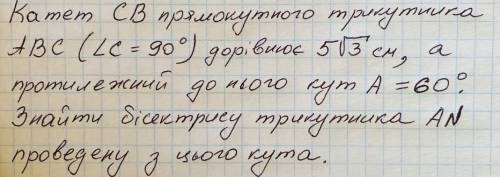 Катет СВ прямокутного трикутника
АВС (∠С = 90°) дорівнює 5√3 см, а
протилежний до нього кут А = 60°.
Знайти бісектрису трикутника AN
проведену з цього кута.